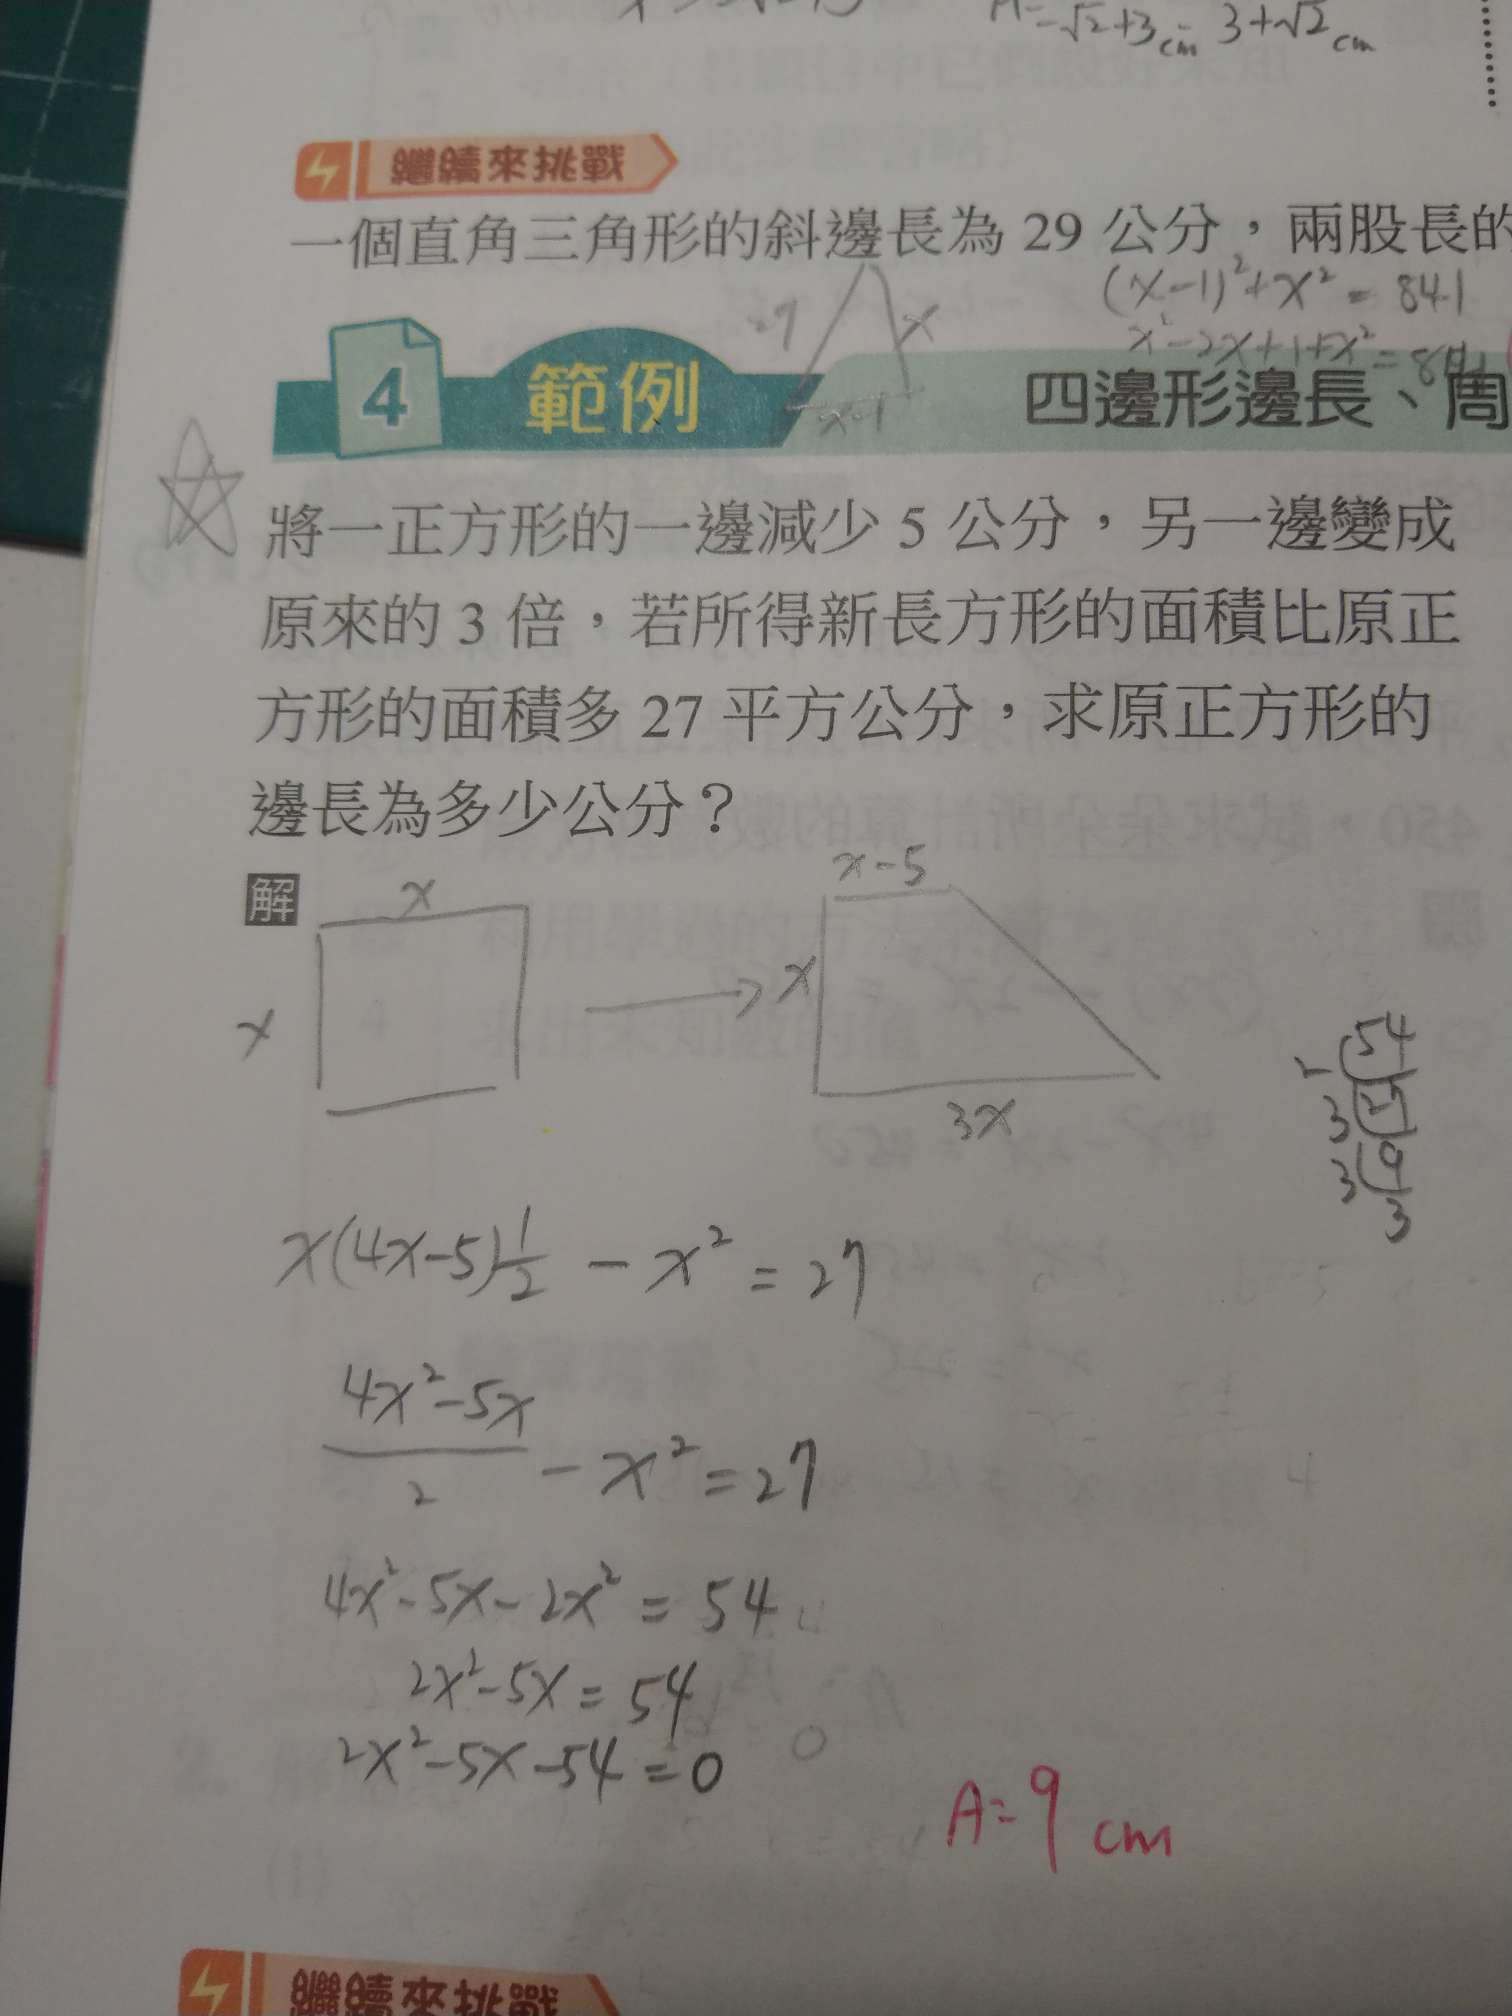 A=-√2+3cm 3+√2cm
繼續來挑戰
一個直角三角形的斜邊長為 29 公分，兩股長的
(x-1)²+x²=841
x²-2x+1+x²=841
29
x
x-1
4 範例 四邊形邊長、周
將一正方形的一邊減少 5 公分，另一邊變成
原來的 3 倍，若所得新長方形的面積比原正
方形的面積多 27 平方公分，求原正方形的
邊長為多少公分？
解
x
x
x-5
x
3x
2 54
3 27
3 9
3
x(4x-5)1/2 - x² = 27
4x²-5x
2
- x² = 27
4x²-5x-2x² = 54
2x²-5x = 54
2x²-5x-54 = 0
A=9 cm
繼續來挑戰